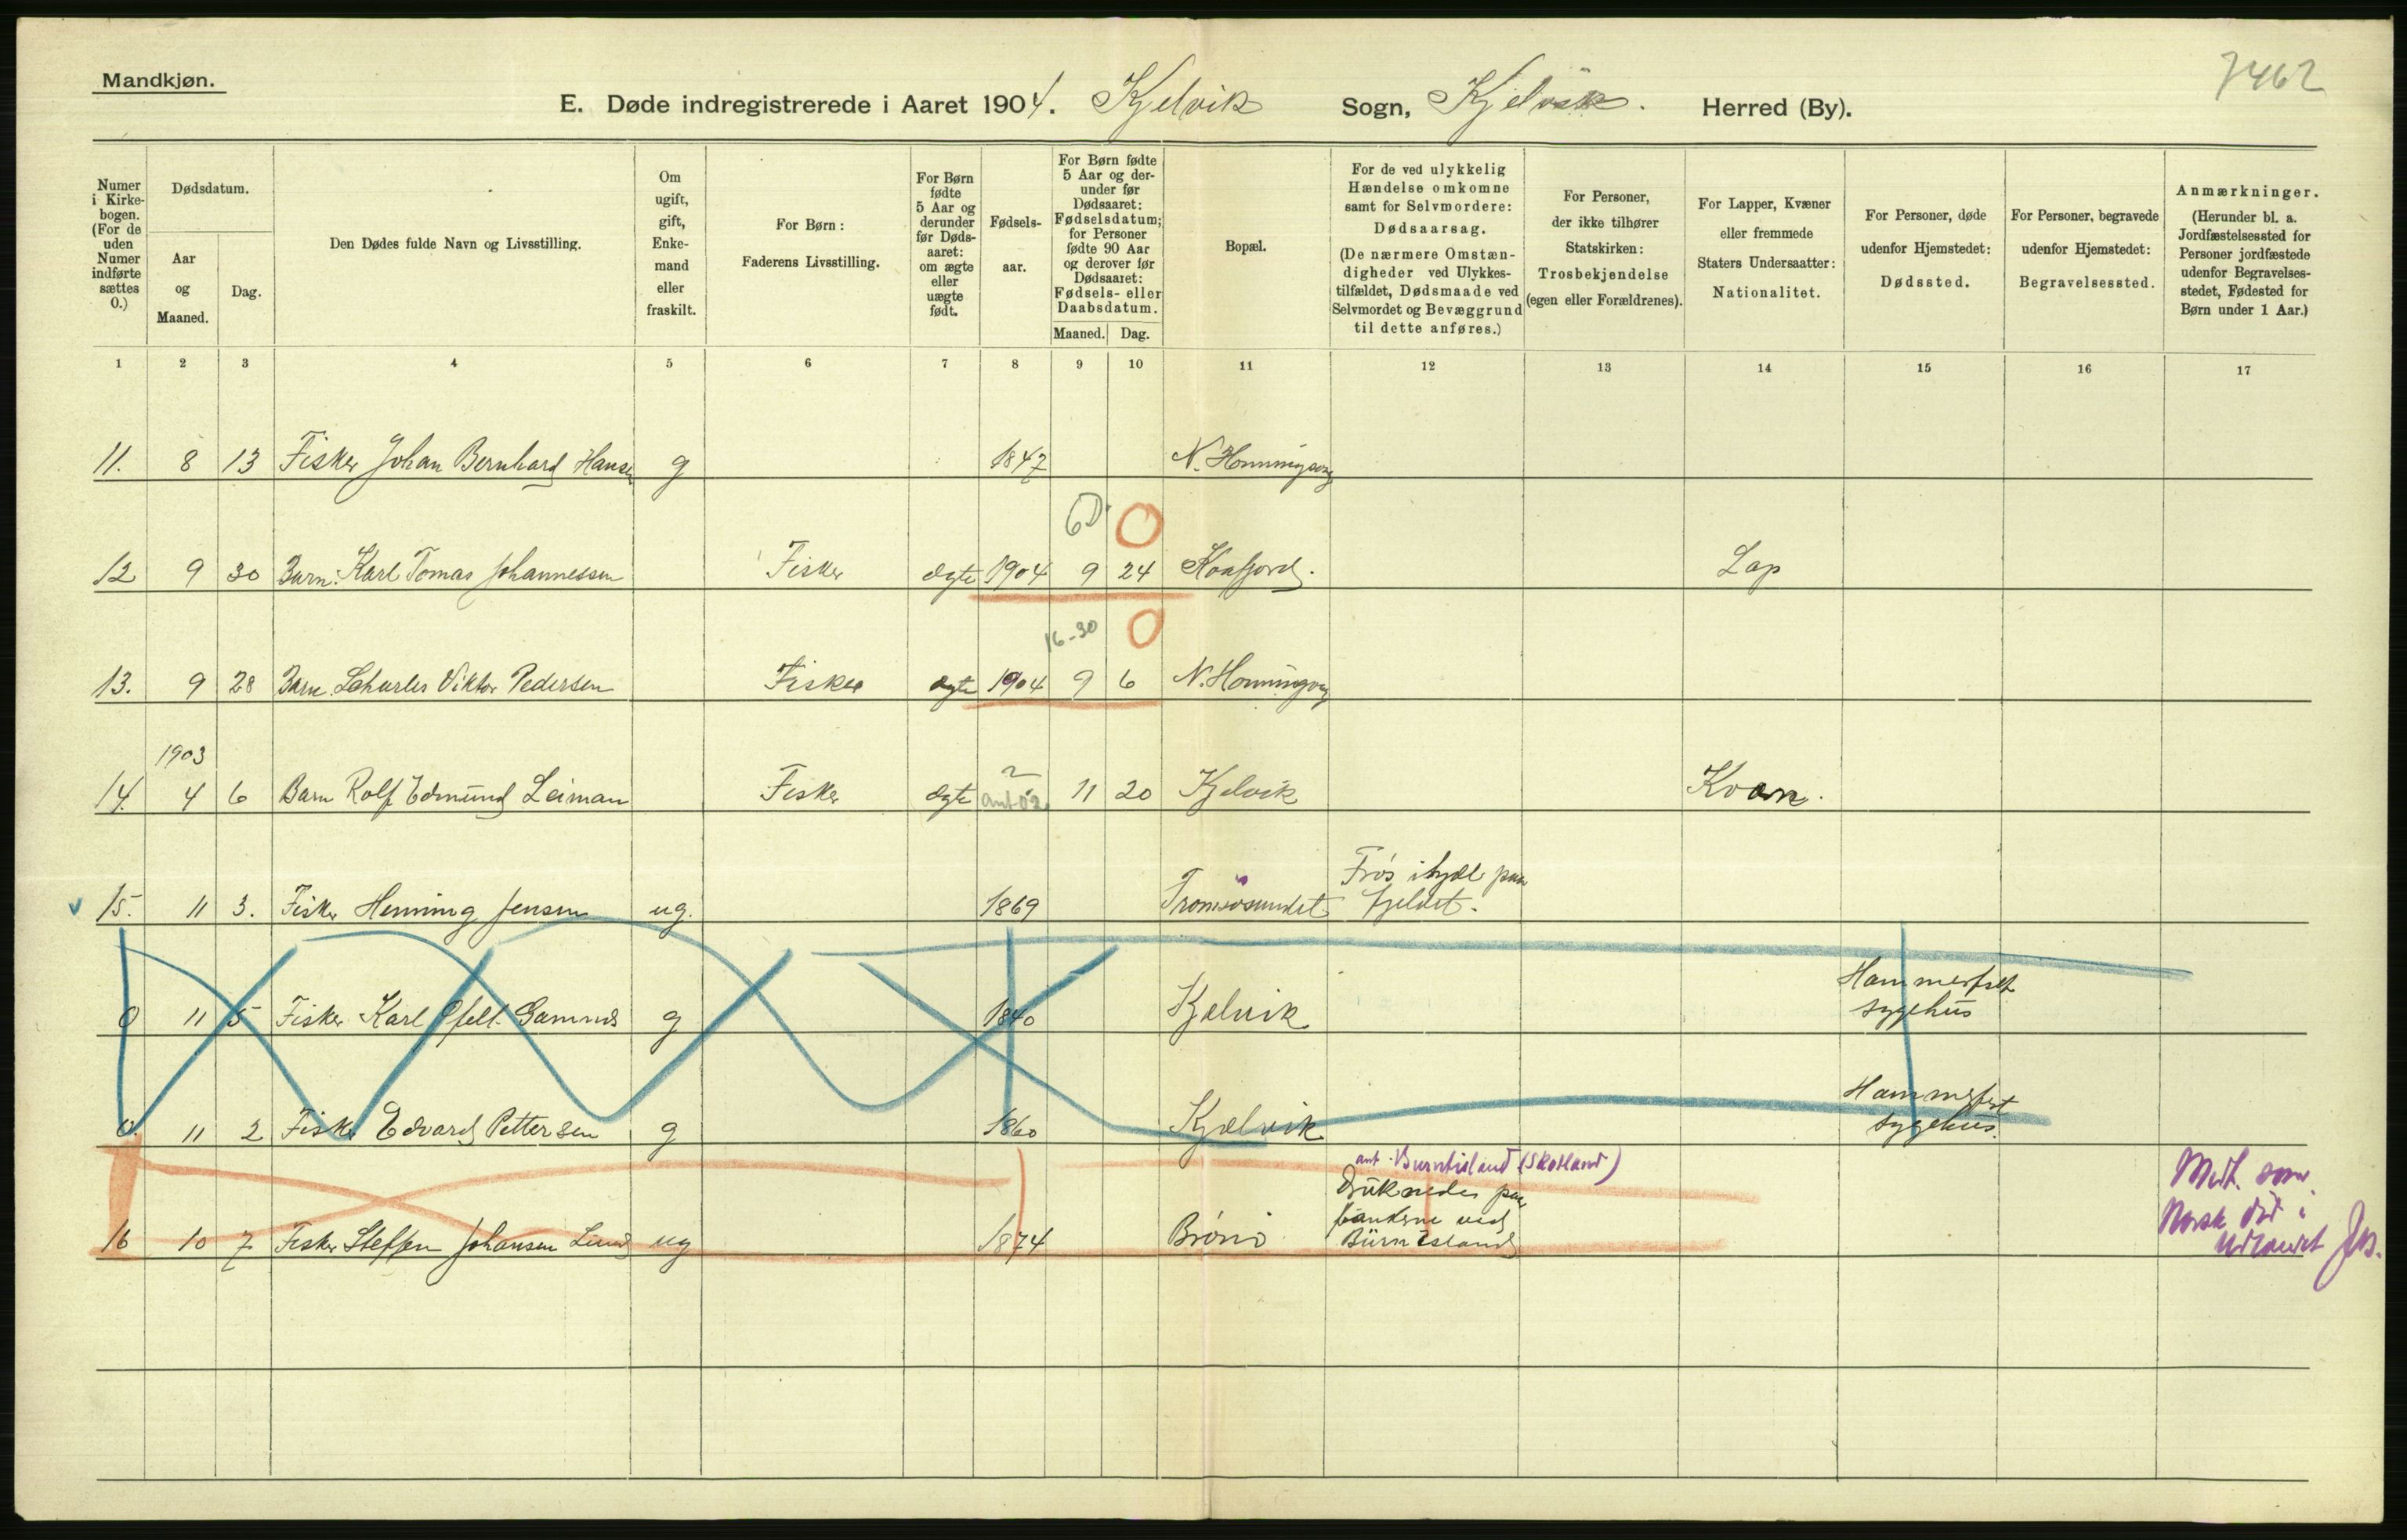 Mandkjøn.
7462
E. Døde indregistrerede i Aaret 1904. Kjelvik Sogn, Kjelvik. Herred (By).
Numer i Kirke-bogen. (For de uden Numer indførte sættes 0.)
Dødsdatum.
Aar og Maaned.
Dag.
Den Dødes fulde Navn og Livsstilling.
Om ugift, gift, Enke-mand eller fraskilt.
For Børn:
Faderens Livsstilling.
For Børn fødte 5 Aar og derunder før Døds-aaret: om ægte eller uægte født.
Fødsels-aar.
For Børn fødte 5 Aar og der-under før Dødsaaret: Fødselsdatum; for Personer fødte 90 Aar og derover før Dødsaaret: Fødsels- eller Daabsdatum.
Maaned. Dag.
Bopæl.
For de ved ulykkelig Hændelse omkomne samt for Selvmordere: Dødsaarsag.
(De nærmere Omstæn-digheder ved Ulykkes-tilfældet, Dødsmaade ved Selvmordet og Bevæggrund til dette anføres.)
For Personer, der ikke tilhører Statskirken: Trosbekjendelse (egen eller Forældrenes).
For Lapper, Kvæner eller fremmede Staters Undersaatter: Nationalitet.
For Personer, døde udenfor Hjemstedet: Dødssted.
For Personer, begravede udenfor Hjemstedet: Begravelsessted.
Anmærkninger.
(Herunder bl. a. Jordfæstelsessted for Personer jordfæstede udenfor Begravelses-stedet, Fødested for Børn under 1 Aar.)
1 2 3 4 5 6 7 8 9 10 11 12 13 14 15 16 17
11. 8 13 Fisker Johan Bernhard Hansen g 1847 N. Honningsvag
6 D. 0
12 9 30 Barn. Karl Tomas Johannessen Fisker ægte 1904 9 24 Kaafjord. Lap
16-30 0
13. 9 28 Barn. Scharles Viktor Pedersen Fisker ægte 1904 9 6 N. Honningvag
1903
14. 4 6 Barn Rolf Edmund Leiman Fisker ægte ant 02 11 20 Kjelvik Kvæn.
15. 11 3. Fisker Henning Jensen ug. 1869 Tromsøsundet Frøs ihjæl paa
fjeldet.
0 11 5 Fisker Karl Ofell. Gamnes g 1840 Kjelvik Hammerfest
sygehus
0. 11 2 Fisker Edvard Pettersen g 1860 Kjelvik Hammerfest
sygehus.
ant. Burntisland (Skotland)
16 10 7 Fisker Steffen Johansen Lund ug 1874 Brønø Druknedes paa
bankerne ved
Burn Island
Medt. som
Norsk død i
Udlandet